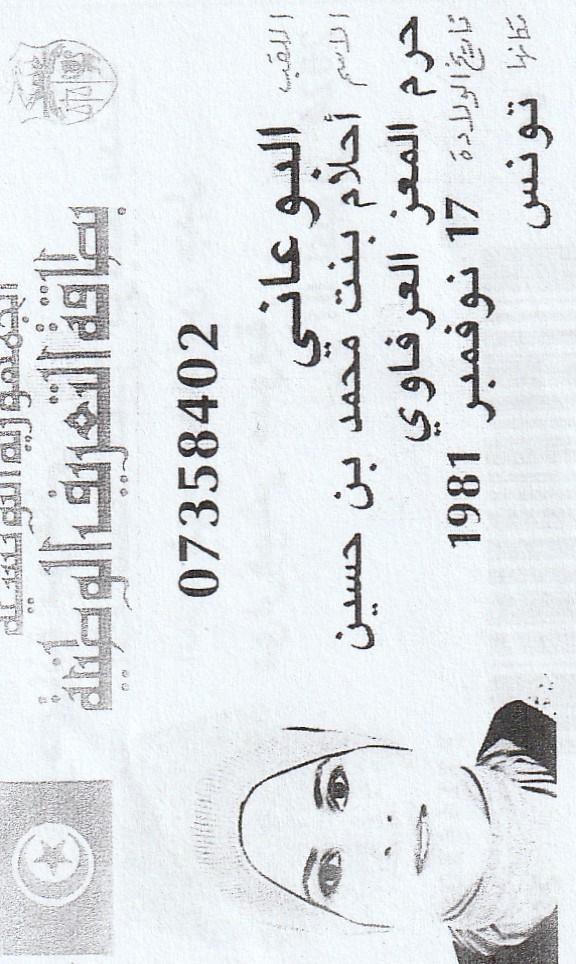 الجمهورية التونسية
بطاقة التعريف الوطنية
07358402
اللقب البوعاني
الاسم أحلام بنت محمد بن حسين
حرم المعز العرفاوي
تاريخ الولادة 17 نوفمبر 1981
مكانها تونس